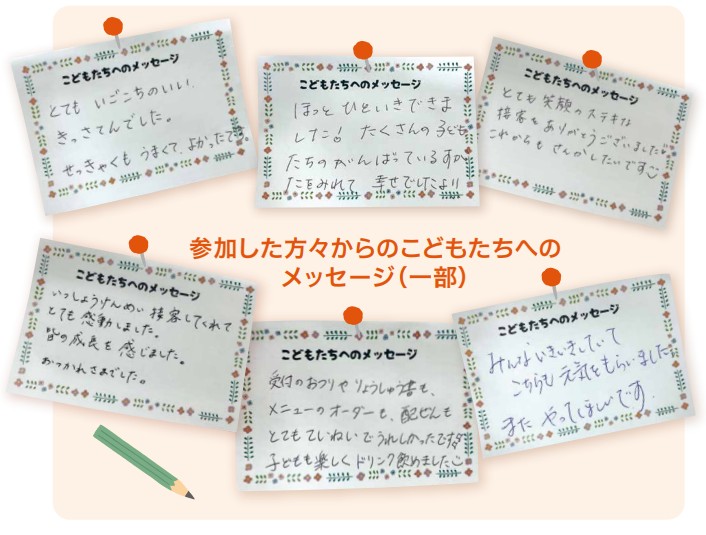 こどもたちへのメッセージ
とても いごこちのいい
きっさてんでした。
せっきゃくも うまくて、よかったです。
こどもたちへのメッセージ
ほっと ひといきできま
した! たくさんの子ども
たちのがんばっているすが
たをみれて 幸せでしたより
こどもたちへのメッセージ
とても 笑顔のステキな
接客をありがとうございました
これからも さんかしたいです
参加した方々からのこどもたちへの
メッセージ(一部)
こどもたちへのメッセージ
いっしょうけんめい 接客してくれて
とても 感動しました。
皆の成長を感じました。
おつかれさまでした。
こどもたちへのメッセージ
受付のおつりやりょうしゅう書も、
メニューのオーダーも、配ぜんも
とてもていねいでうれしかったです
子どもも楽しくドリンク飲めました
こどもたちへのメッセージ
みんないきいきしていて
こちらも 元気をもらいました
また やってほしいです.